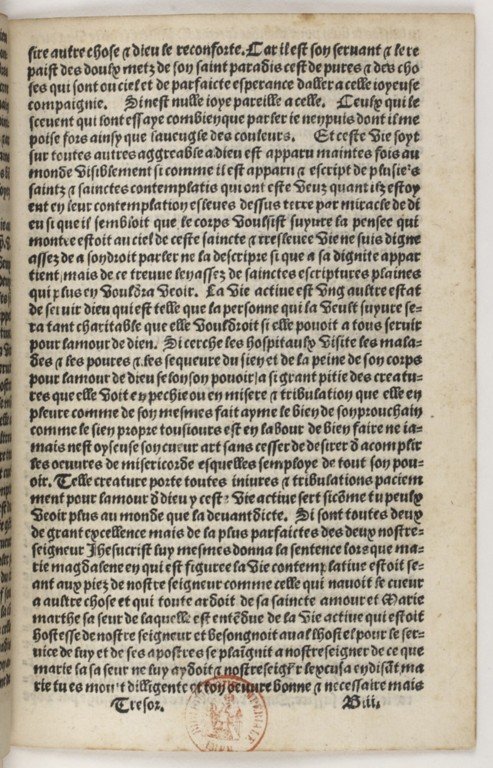 sire autre chose ⁊ dieu le reconforte. Car il est son seruant ⁊ le re
paist des doulx metz de son saint paradis cest de pures ⁊ des cho
ses qui sont ou ciel et de parfaicte esperance daller a celle ioyeuse
compaignie. Si nest nulle ioye pareille a celle. Ceulx qui le
sceuent qui sont essaye combien que parler ie nen puis dont il me
poise fors ainsy que laueugle des couleurs. Et ceste vie soyt
sur toutes autres aggreable a dieu est apparu maintes fois au
monde visiblement si comme il est apparu ⁊ escript de plusie's
saintz ⁊ sainctes contemplatis qui ont este veuz quant ilz estoy
ent en leur contemplation esleues dessus terre par miracle de di
eu si que il sembloit que le corps voulsist suyure la pensee qui
montee estoit au ciel de ceste saincte ⁊ tresleuee vie ne suis digne
assez de a son droit parler ne la descripre si que a sa dignite appar
tient, mais de ce treuue len assez de sainctes escriptures plaines
qui plus en vouldra veoir. La vie actiue est vng aultre estat
de seruir dieu qui est telle que la personne qui la veult suyure se-
ra tant charitable que elle vouldroit si elle pouoit a tous seruir
pour lamour de dieu. Si cerche les hospitaulx visite les mala-
des ⁊ les poures ⁊ les sequeure du sien et de la peine de son corps
pour lamour de dieu selon son pouoir / a si grant pitie des creatu-
res que elle voit en pechie ou en misere ⁊ tribulation que elle en
pleure comme de son mesmes fait ayme le bien de son prouchain
comme le sien propre tousiours est en labour de bien faire ne ia-
mais nest oyseuse son cueur art sans cesser de desirer d acomplir
les oeuures de misericorde esquelles semploye de tout son pou-
oir. Telle creature porte toutes iniures ⁊ tribulations paciem
ment pour lamour d dieu y cest' vie actiue sert sicōme tu peulx
veoir plus au monde que la deuant dicte. Si sont toutes deux
de grant excellence mais de la plus parfaictes des deux nostre-
seigneur Jhesucrist luy mesmes donna la sentence lors que ma-
rie magdalene en qui est figuree la vie contemplatiue estoit se-
ant aux piez de nostre seigneur comme celle qui nauoit le cueur
a aultre chose et qui toute ardoit de sa saincte amour et Marie
marthe sa seur de laquelle est entēdue de la vie actiue qui estoit
hostesse de nostre seigneur et besongnoit aual lhostel pour le ser-
uice de luy et de ses apostres se plaignit a nostre seigner de ce que
marie la sa seur ne luy aydoit ⁊ nostre seigr̄ lexcusa en disāt, ma
rie tu es moult dilligente et ton oeuure bonne ⁊ necessaire mais
Tresor. Biii.